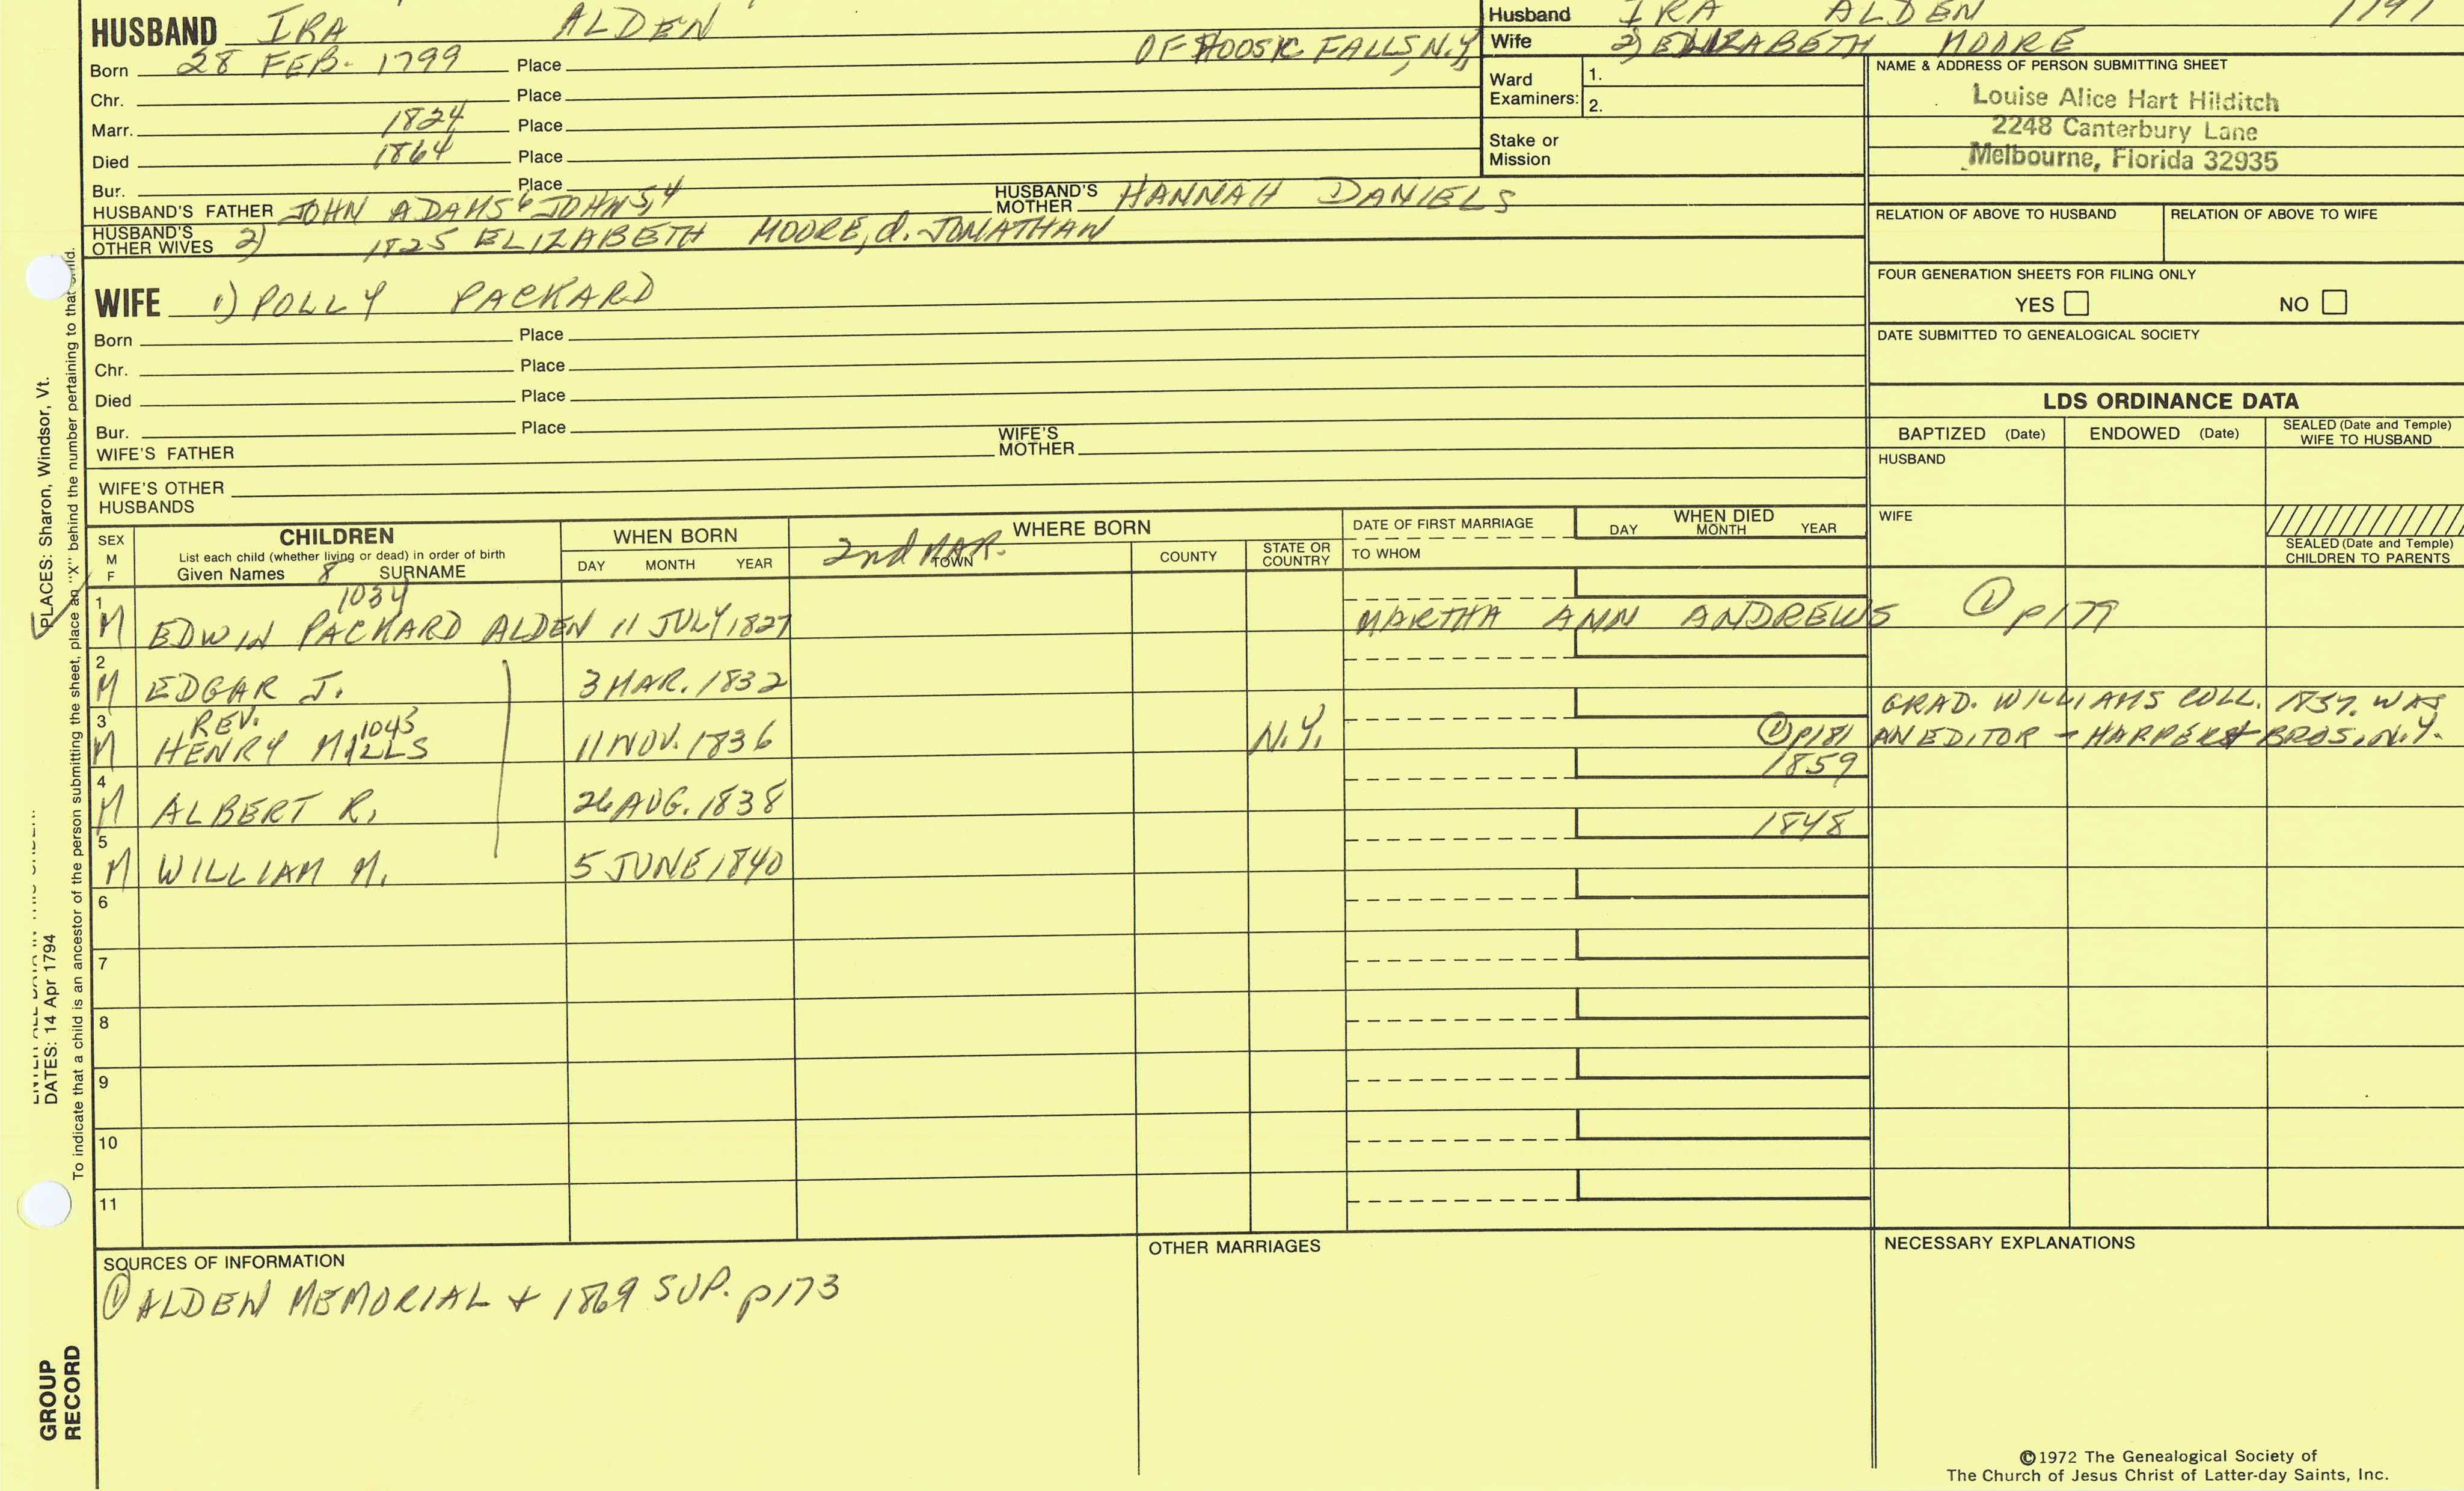 HUSBAND IRA ALDEN
Born 28 FEB. 1799 Place OF HOOSIC FALLS, N.Y.
Chr. Place
Marr. 1824 Place
Died 1864 Place
Bur. Place
HUSBAND'S FATHER JOHN ADAMS6 JOHN5,4 HUSBAND'S MOTHER HANNAH DANIELS
HUSBAND'S OTHER WIVES 2) 1825 ELIZABETH MOORE, d. JONATHAN
Husband IRA ALDEN
Wife 2) ELIZABETH MOORE
Ward Examiners: 1.
2.
Stake or Mission
NAME & ADDRESS OF PERSON SUBMITTING SHEET
Louise Alice Hart Hilditch
2248 Canterbury Lane
Melbourne, Florida 32935
RELATION OF ABOVE TO HUSBAND RELATION OF ABOVE TO WIFE
FOUR GENERATION SHEETS FOR FILING ONLY
YES NO
DATE SUBMITTED TO GENEALOGICAL SOCIETY
WIFE 1) POLLY PACKARD
Born Place
Chr. Place
Died Place
Bur. Place
WIFE'S FATHER WIFE'S MOTHER
WIFE'S OTHER HUSBANDS
LDS ORDINANCE DATA
BAPTIZED (Date) ENDOWED (Date) SEALED (Date and Temple) WIFE TO HUSBAND
HUSBAND
WIFE
SEALED (Date and Temple) CHILDREN TO PARENTS
SEX M F
CHILDREN
List each child (whether living or dead) in order of birth
Given Names 8 SURNAME
WHEN BORN
DAY MONTH YEAR
WHERE BORN
2nd MAR.
TOWN COUNTY STATE OR COUNTRY
DATE OF FIRST MARRIAGE
TO WHOM
WHEN DIED
DAY MONTH YEAR
1034
1 M EDWIN PACKARD ALDEN 11 JULY 1827 MARTHA ANN ANDREWS ① p179
2 M EDGAR J. 3 MAR. 1832
REV. 1043
3 M HENRY MILLS 11 NOV. 1836 N.Y. ① p181
GRAD. WILLIAMS COLL. 1857. WAS
AN EDITOR - HARPER + BROS., N.Y.
4 M ALBERT R. 26 AUG. 1838 1859
5 M WILLIAM M. 5 JUNE 1840 1848
6
7
8
9
10
11
SOURCES OF INFORMATION
① ALDEN MEMORIAL + 1869 SUP. p173
OTHER MARRIAGES
NECESSARY EXPLANATIONS
©1972 The Genealogical Society of
The Church of Jesus Christ of Latter-day Saints, Inc.
PLACES: Sharon, Windsor, Vt.
DATES: 14 Apr 1794
To indicate that a child is an ancestor of the person submitting the sheet, place an "X" behind the number pertaining to that child.
GROUP
RECORD